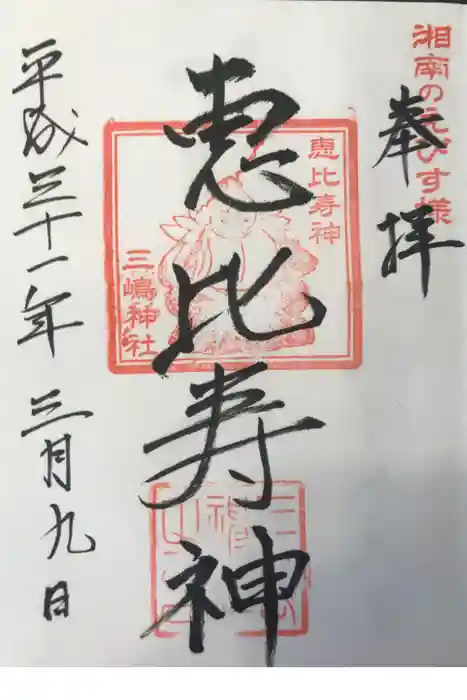 湘南のえびす様
奉拝
恵比寿神
恵比寿神
三嶋神社
平成三十一年三月九日